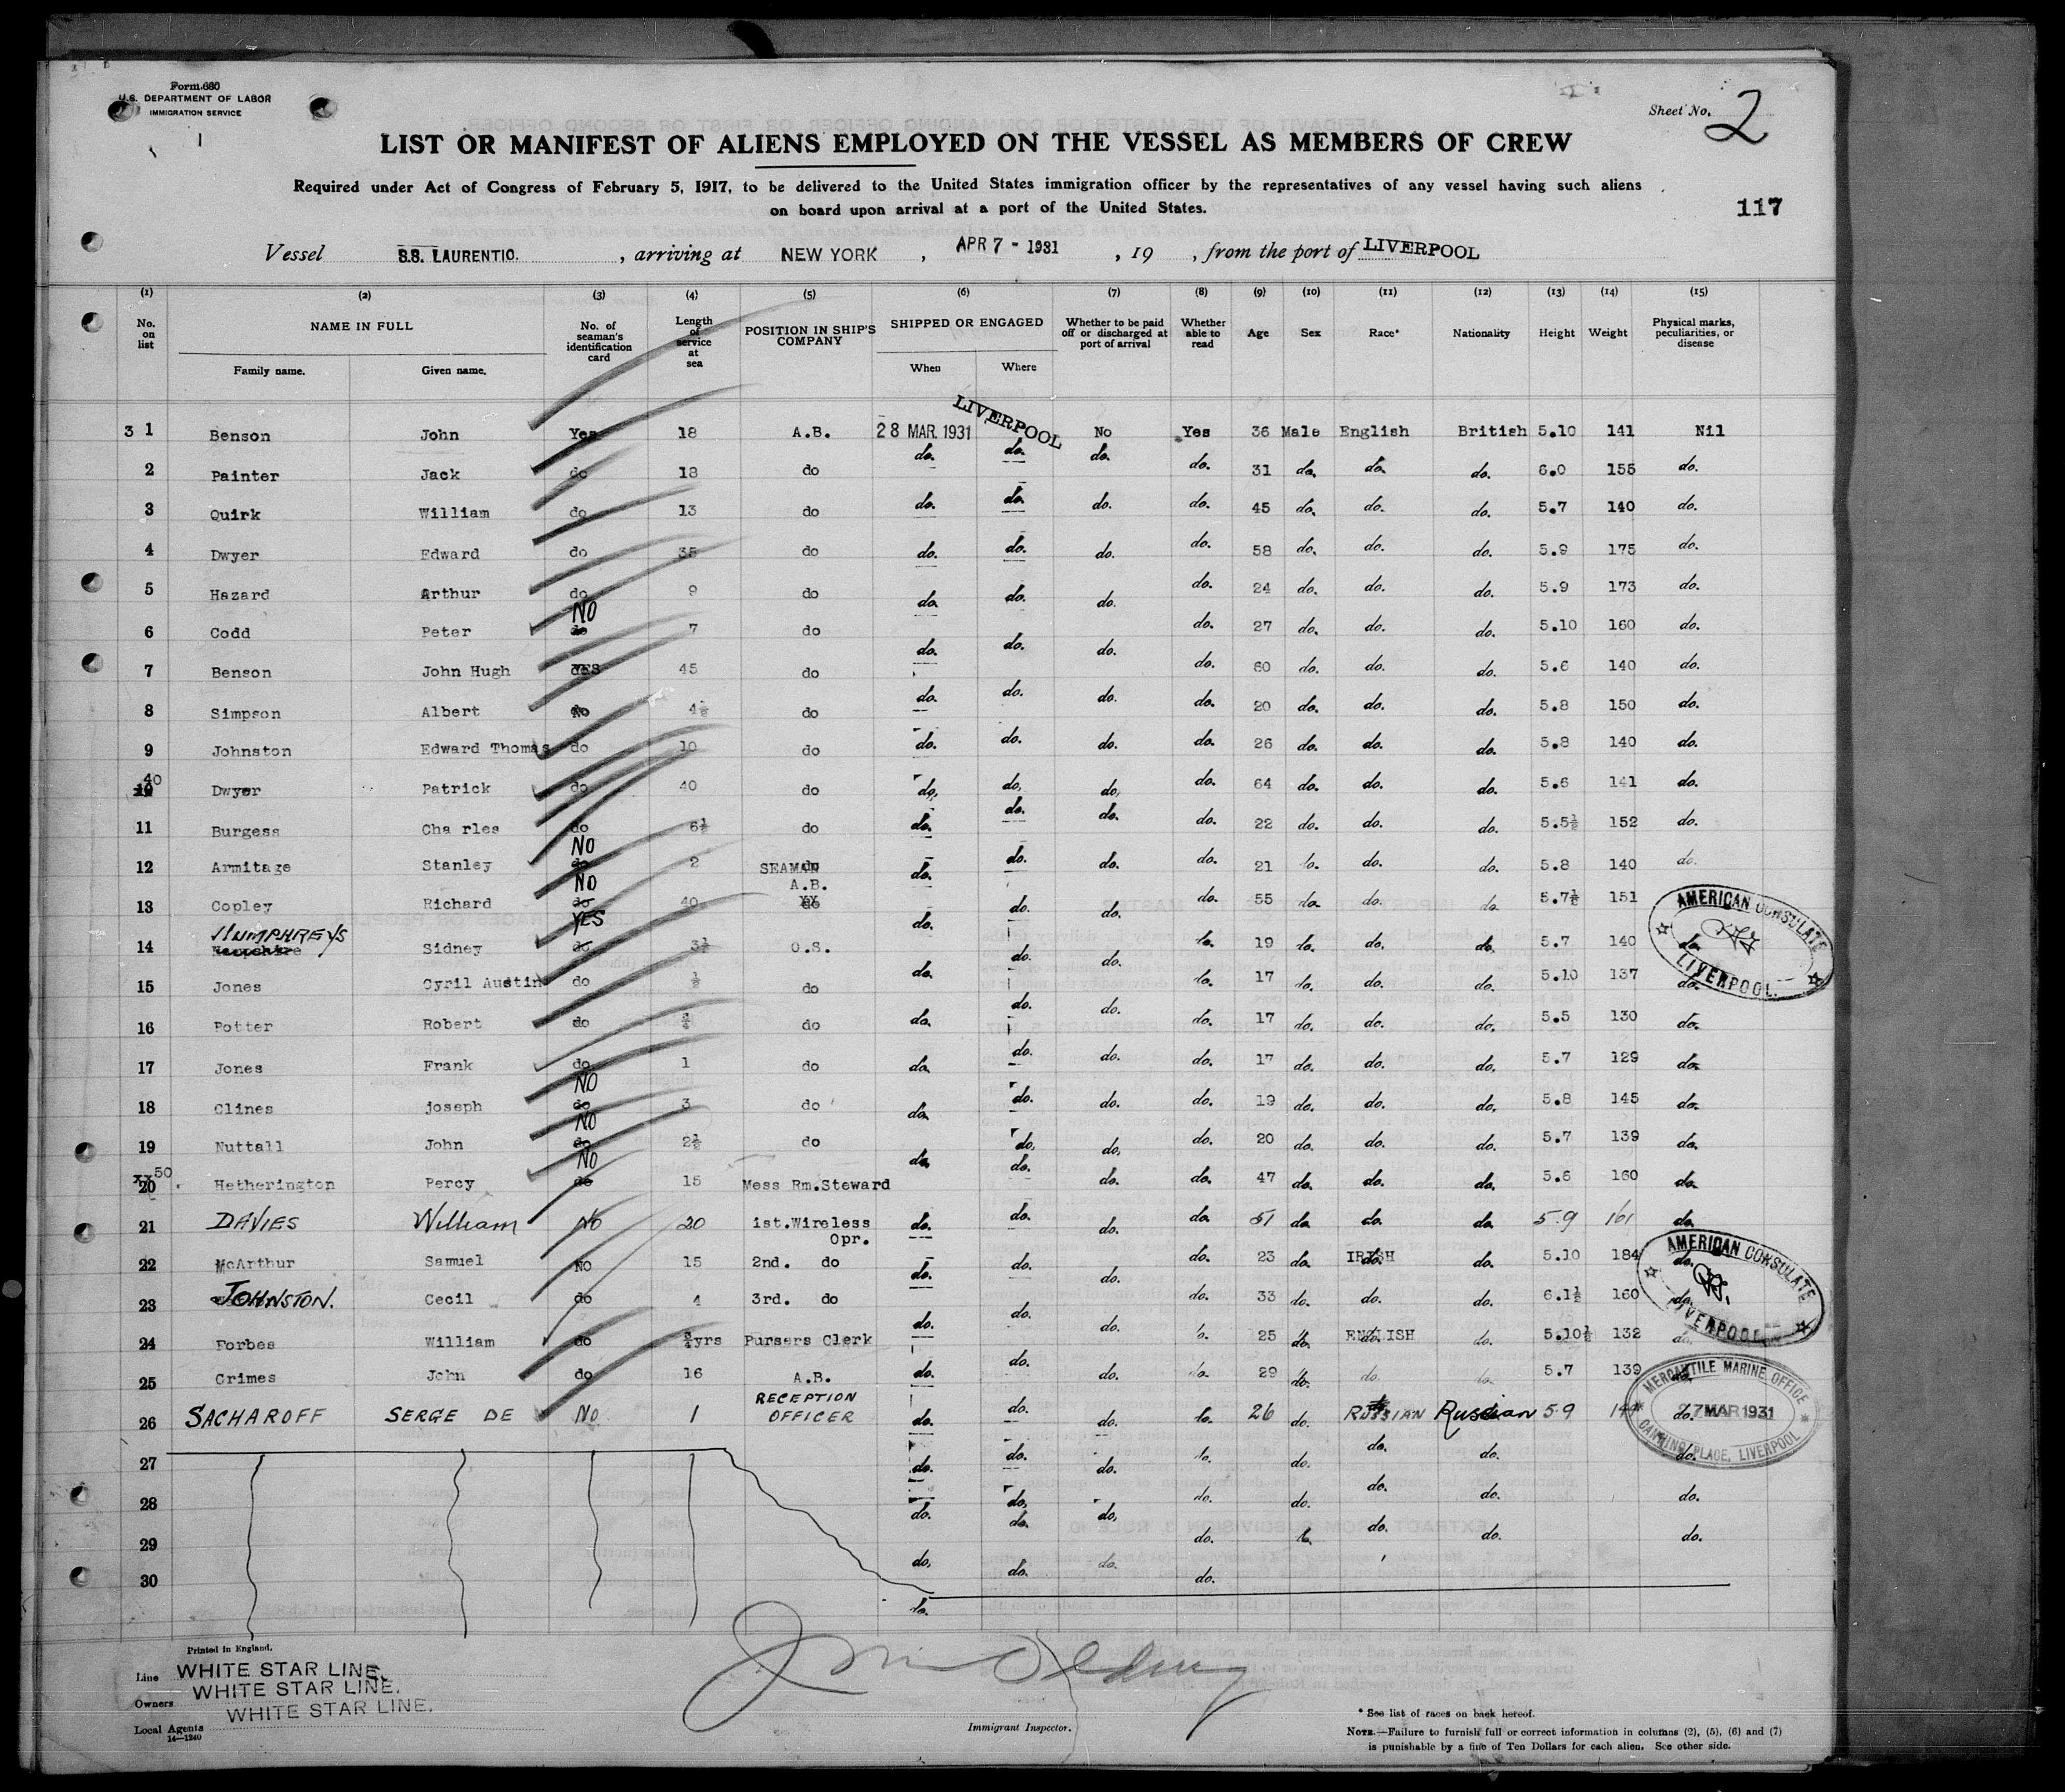 Form 680
U.S. DEPARTMENT OF LABOR
IMMIGRATION SERVICE
Sheet No. 2
LIST OR MANIFEST OF ALIENS EMPLOYED ON THE VESSEL AS MEMBERS OF CREW
Required under Act of Congress of February 5, 1917, to be delivered to the United States immigration officer by the representatives of any vessel having such aliens
on board upon arrival at a port of the United States.
117
Vessel S.S. LAURENTIC. , arriving at NEW YORK , APR 7 - 1931 , 19 , from the port of LIVERPOOL
(1) (2) (3) (4) (5) (6) (7) (8) (9) (10) (11) (12) (13) (14) (15)
No. on list NAME IN FULL Family name. Given name. No. of seaman's identification card Length of service at sea POSITION IN SHIP'S COMPANY SHIPPED OR ENGAGED When Where Whether to be paid off or discharged at port of arrival Whether able to read Age Sex Race* Nationality Height Weight Physical marks, peculiarities, or disease
3 1 Benson John Yes 18 A.B. 28 MAR. 1931 LIVERPOOL No Yes 36 Male English British 5.10 141 Nil
2 Painter Jack do 18 do do. do. do. do. 31 do. do. do. 6.0 155 do.
3 Quirk William do 13 do do. do. do. do. 45 do. do. do. 5.7 140 do.
4 Dwyer Edward do 35 do do. do. do. do. 58 do. do. do. 5.9 175 do.
5 Hazard Arthur do 9 do do. do. do. do. 24 do. do. do. 5.9 173 do.
6 Codd Peter NO 7 do do. do. do. do. 27 do. do. do. 5.10 160 do.
7 Benson John Hugh YES 45 do do. do. do. do. 60 do. do. do. 5.6 140 do.
8 Simpson Albert No 4½ do do. do. do. do. 20 do. do. do. 5.8 150 do.
9 Johnston Edward Thomas do 10 do do. do. do. do. 26 do. do. do. 5.8 140 do.
40 Dwyer Patrick do 40 do do. do. do. do. 64 do. do. do. 5.6 141 do.
11 Burgess Cha rles do 6½ do do. do. do. do. 22 do. do. do. 5.5½ 152 do.
12 Armitage Stanley NO 2 SEAMAN do. do. do. do. 21 do. do. do. 5.8 140 do.
13 Copley Richard NO 40 A.B. do. do. do. do. 55 do. do. do. 5.7½ 151
14 HUMPHREYS Sidney YES 3½ O.S. do. do. do. do. 19 do. do. do. 5.7 140 do.
15 Jones Cyril Austin do ½ do do. do. do. do. 17 do. do. do. 5.10 137 do.
16 Potter Robert do do do. do. do. do. 17 do. do. do. 5.5 130 do.
17 Jones Frank do 1 do do. do. do. do. 17 do. do. do. 5.7 129 do.
18 Clines joseph NO 3 do do. do. do. do. 19 do. do. do. 5.8 145 do.
19 Nuttall John NO 2½ do do. do. do. do. 20 do. do. do. 5.7 139 do.
50 20 Hetherington Percy NO 15 Mess Rm.Steward do. do. do. 47 do. do. do. 5.6 160 do.
21 DAVIES William No 20 1st.Wireless Opr. do. do. do. do. 51 do. do. do. 5.9 161 do.
22 McArthur Samuel NO 15 2nd. do do. do. do. do. 23 do. IRISH do. 5.10 184 do.
23 JOHNSTON. Cecil do 4 3rd. do do. do. do. do. 33 do. do. do. 6.1½ 160 do.
24 Forbes William do yrs Pursers Clerk do. do. do. 25 do. ENGLISH do. 5.10½ 132 do.
25 Crimes John do 16 A.B. do. do. do. do. 29 do. do. do. 5.7 139 do.
26 SACHAROFF SERGE DE NO 1 RECEPTION OFFICER do. do. do. do. 26 do. RUSSIAN Russian 5.9 do.
27 do. do. do. do. do. do. do. do.
28 do. do. do. do. do. do. do. do.
29 do. do. do. do. do. do. do.
30 do. do. do. do.
do.
AMERICAN CONSULATE
LIVERPOOL.
AMERICAN CONSULATE
LIVERPOOL
MERCANTILE MARINE OFFICE
27 MAR 1931
CANNING PLACE, LIVERPOOL
Printed in England.
Line WHITE STAR LINE.
Owners WHITE STAR LINE.
Local Agents WHITE STAR LINE.
14—1240
Immigrant Inspector.
* See list of races on back hereof.
NOTE.—Failure to furnish full or correct information in columns (2), (5), (6) and (7)
is punishable by a fine of Ten Dollars for each alien. See other side.